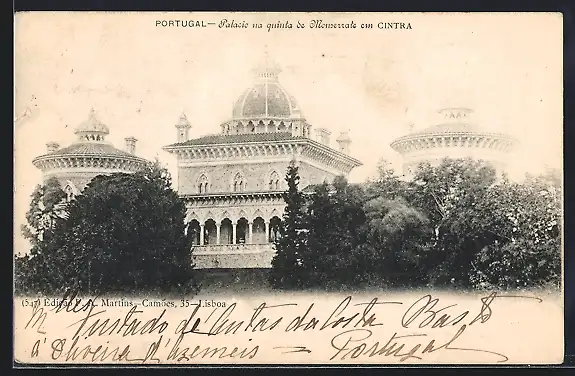 PORTUGAL — Palacio na quinta de Monserrate em CINTRA
(547) Edição F. A. Martins, Camões, 35 — Lisboa
M.lles Fustado de Antas da Costa Bastos
á Oliveira d'Azemeis = Portugal